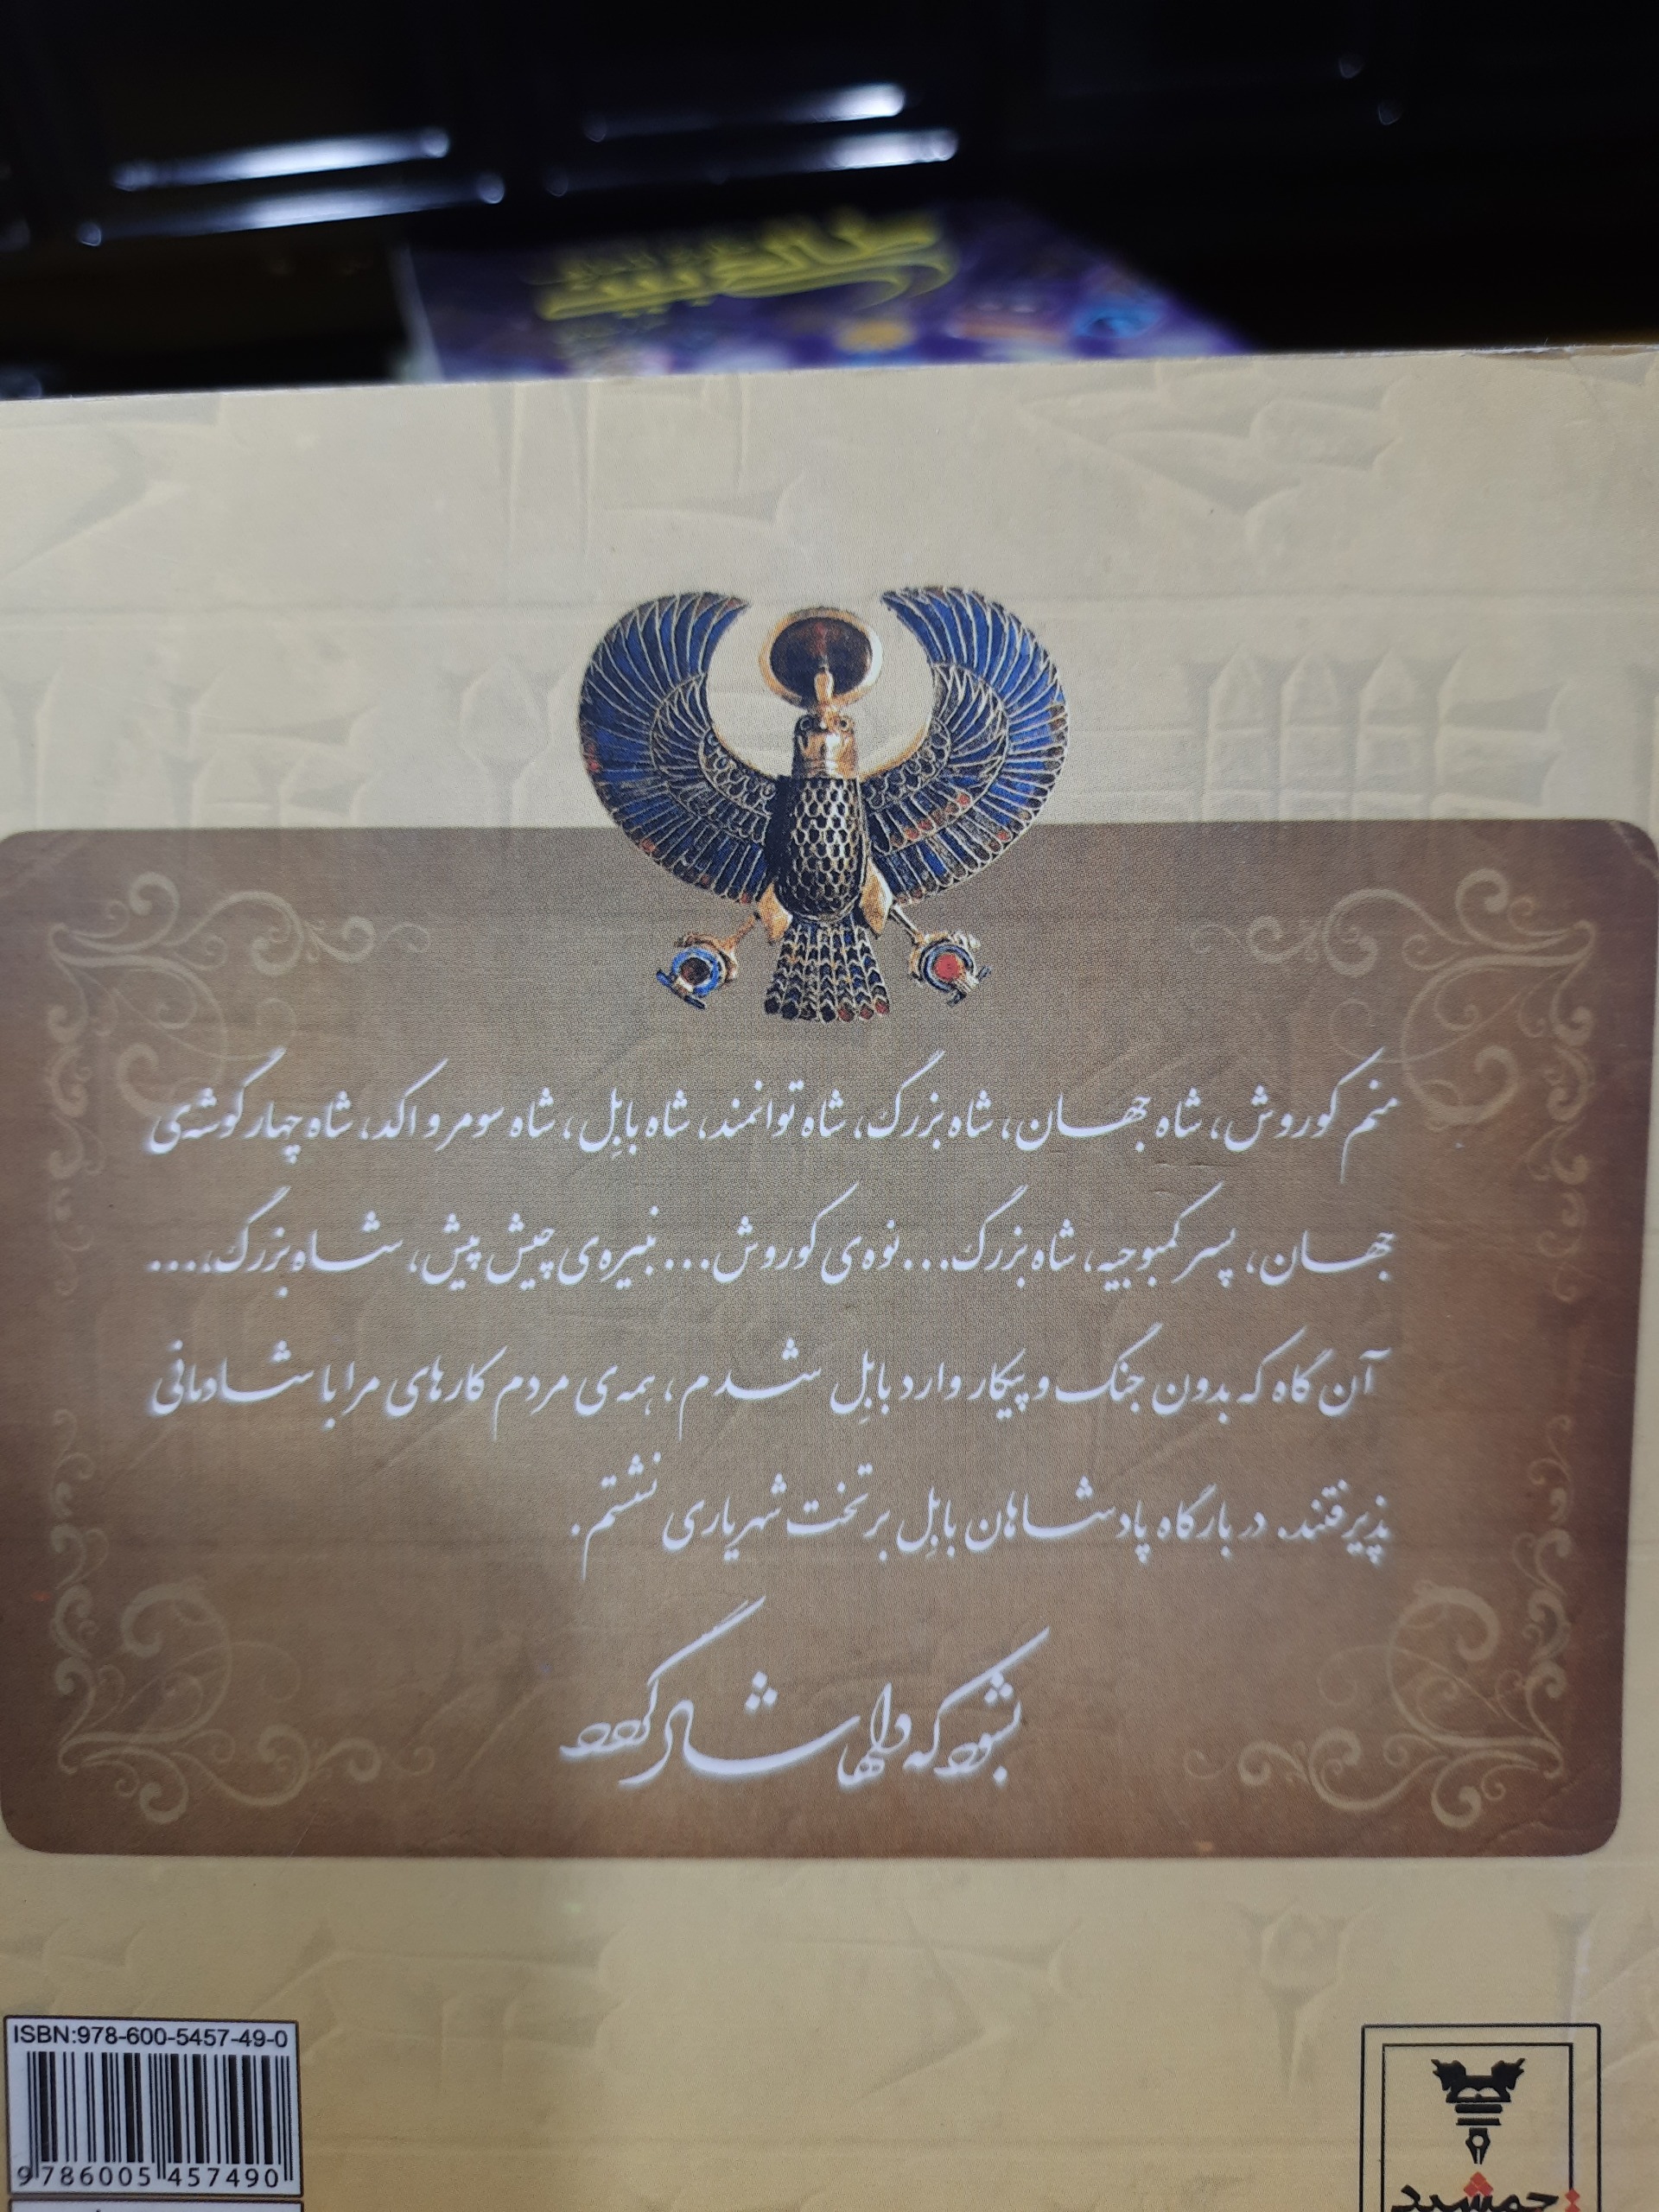 طالع بینی
منم کوروش، شاه جهان، شاه بزرگ، شاه توانمند، شاه بابِل، شاه سومر و اکد، شاه چهار گوشه‌ی
جهان، پسر کمبوجیه، شاه بزرگ... نوه‌ی کوروش... نبیره‌ی چیش پیش، شاه بزرگ،...
آن گاه که بدون جنگ و پیکار وارد بابِل شدم، همه‌ی مردم کارهای مرا با شادمانی
پذیرفتند. در بارگاه پادشاهان بابِل بر تخت شهریاری نشستم.
بشود که دلها شاد گردد
ISBN:978-600-5457-49-0
9786005457490
جمشید